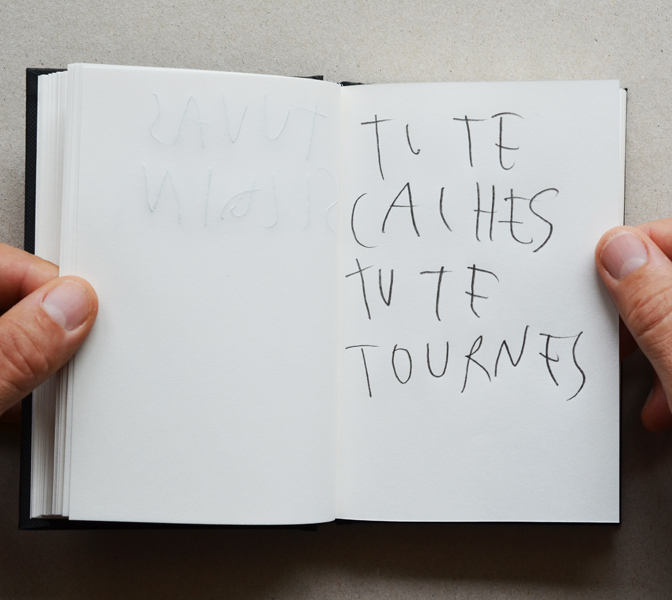 TU VAS
TU TE
CACHES
TU TE
TOURNES